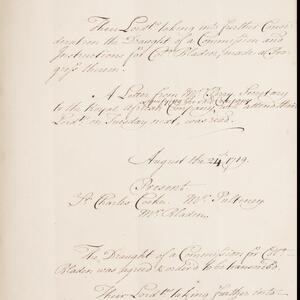 Their Lordps taking into further Consi-
deration the Draught of a Commission and
Instructions for Colo. Bladen, made a Pro-
gress therein.
A Letter from Mr. Perry Secretary
to the Royal African Company,
Lordps on Tuesday next, was read.
August the 24th 1719.
Present
Sr. Charles Cooke. Mr. Pulteney
Mr. Bladen.
The Draught of a Commission for Colo.
Bladen was agreed & order'd to be transcrib'd.
Their Lordps taking further into